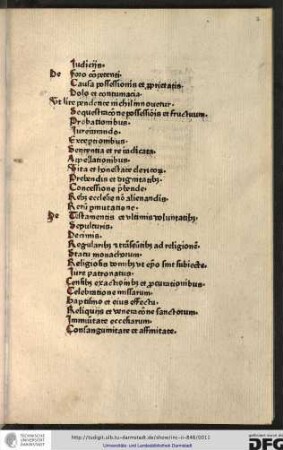 2
Iudicijs.
De foro cōpetenti.
Causa possessionis et ꝓprietatis.
Dolo et contumacia.
Ut lite pendente nichil innouetur.
Sequestracōne possessiōis et fructuum.
Probationibus.
Iureiurando.
Exceptionibus.
Sententia et re iudicata.
Appellationibus.
Vita et honestate clericorum.
Prebendis et dignitatibꝫ.
Concessione p̄bende.
Rebꝫ ecclesie nō alienandis.
Rerū pmutatione.
De Testamentis et vltimis voluntatibꝫ.
Sepulturis.
Decimis.
Regularibꝫ et trāseūtibꝫ ad religionē.
Statu monachorum.
Religiosis domibꝫ vt ep̄o sint subiecte.
Iure patronatus.
Censibꝫ exactiōibꝫ et ꝓcurationibus.
Celebratione missarum.
Baptismo et eius effectu.
Reliquijs et veneracōne sanctorum.
Immunitate ecclesiarum.
Consanguinitate et affinitate.
TECHNISCHE UNIVERSITÄT DARMSTADT
http://tudigit.ulb.tu-darmstadt.de/show/inc-ii-848/0011
Universitäts- und Landesbibliothek Darmstadt
gefördert durch die
DFG